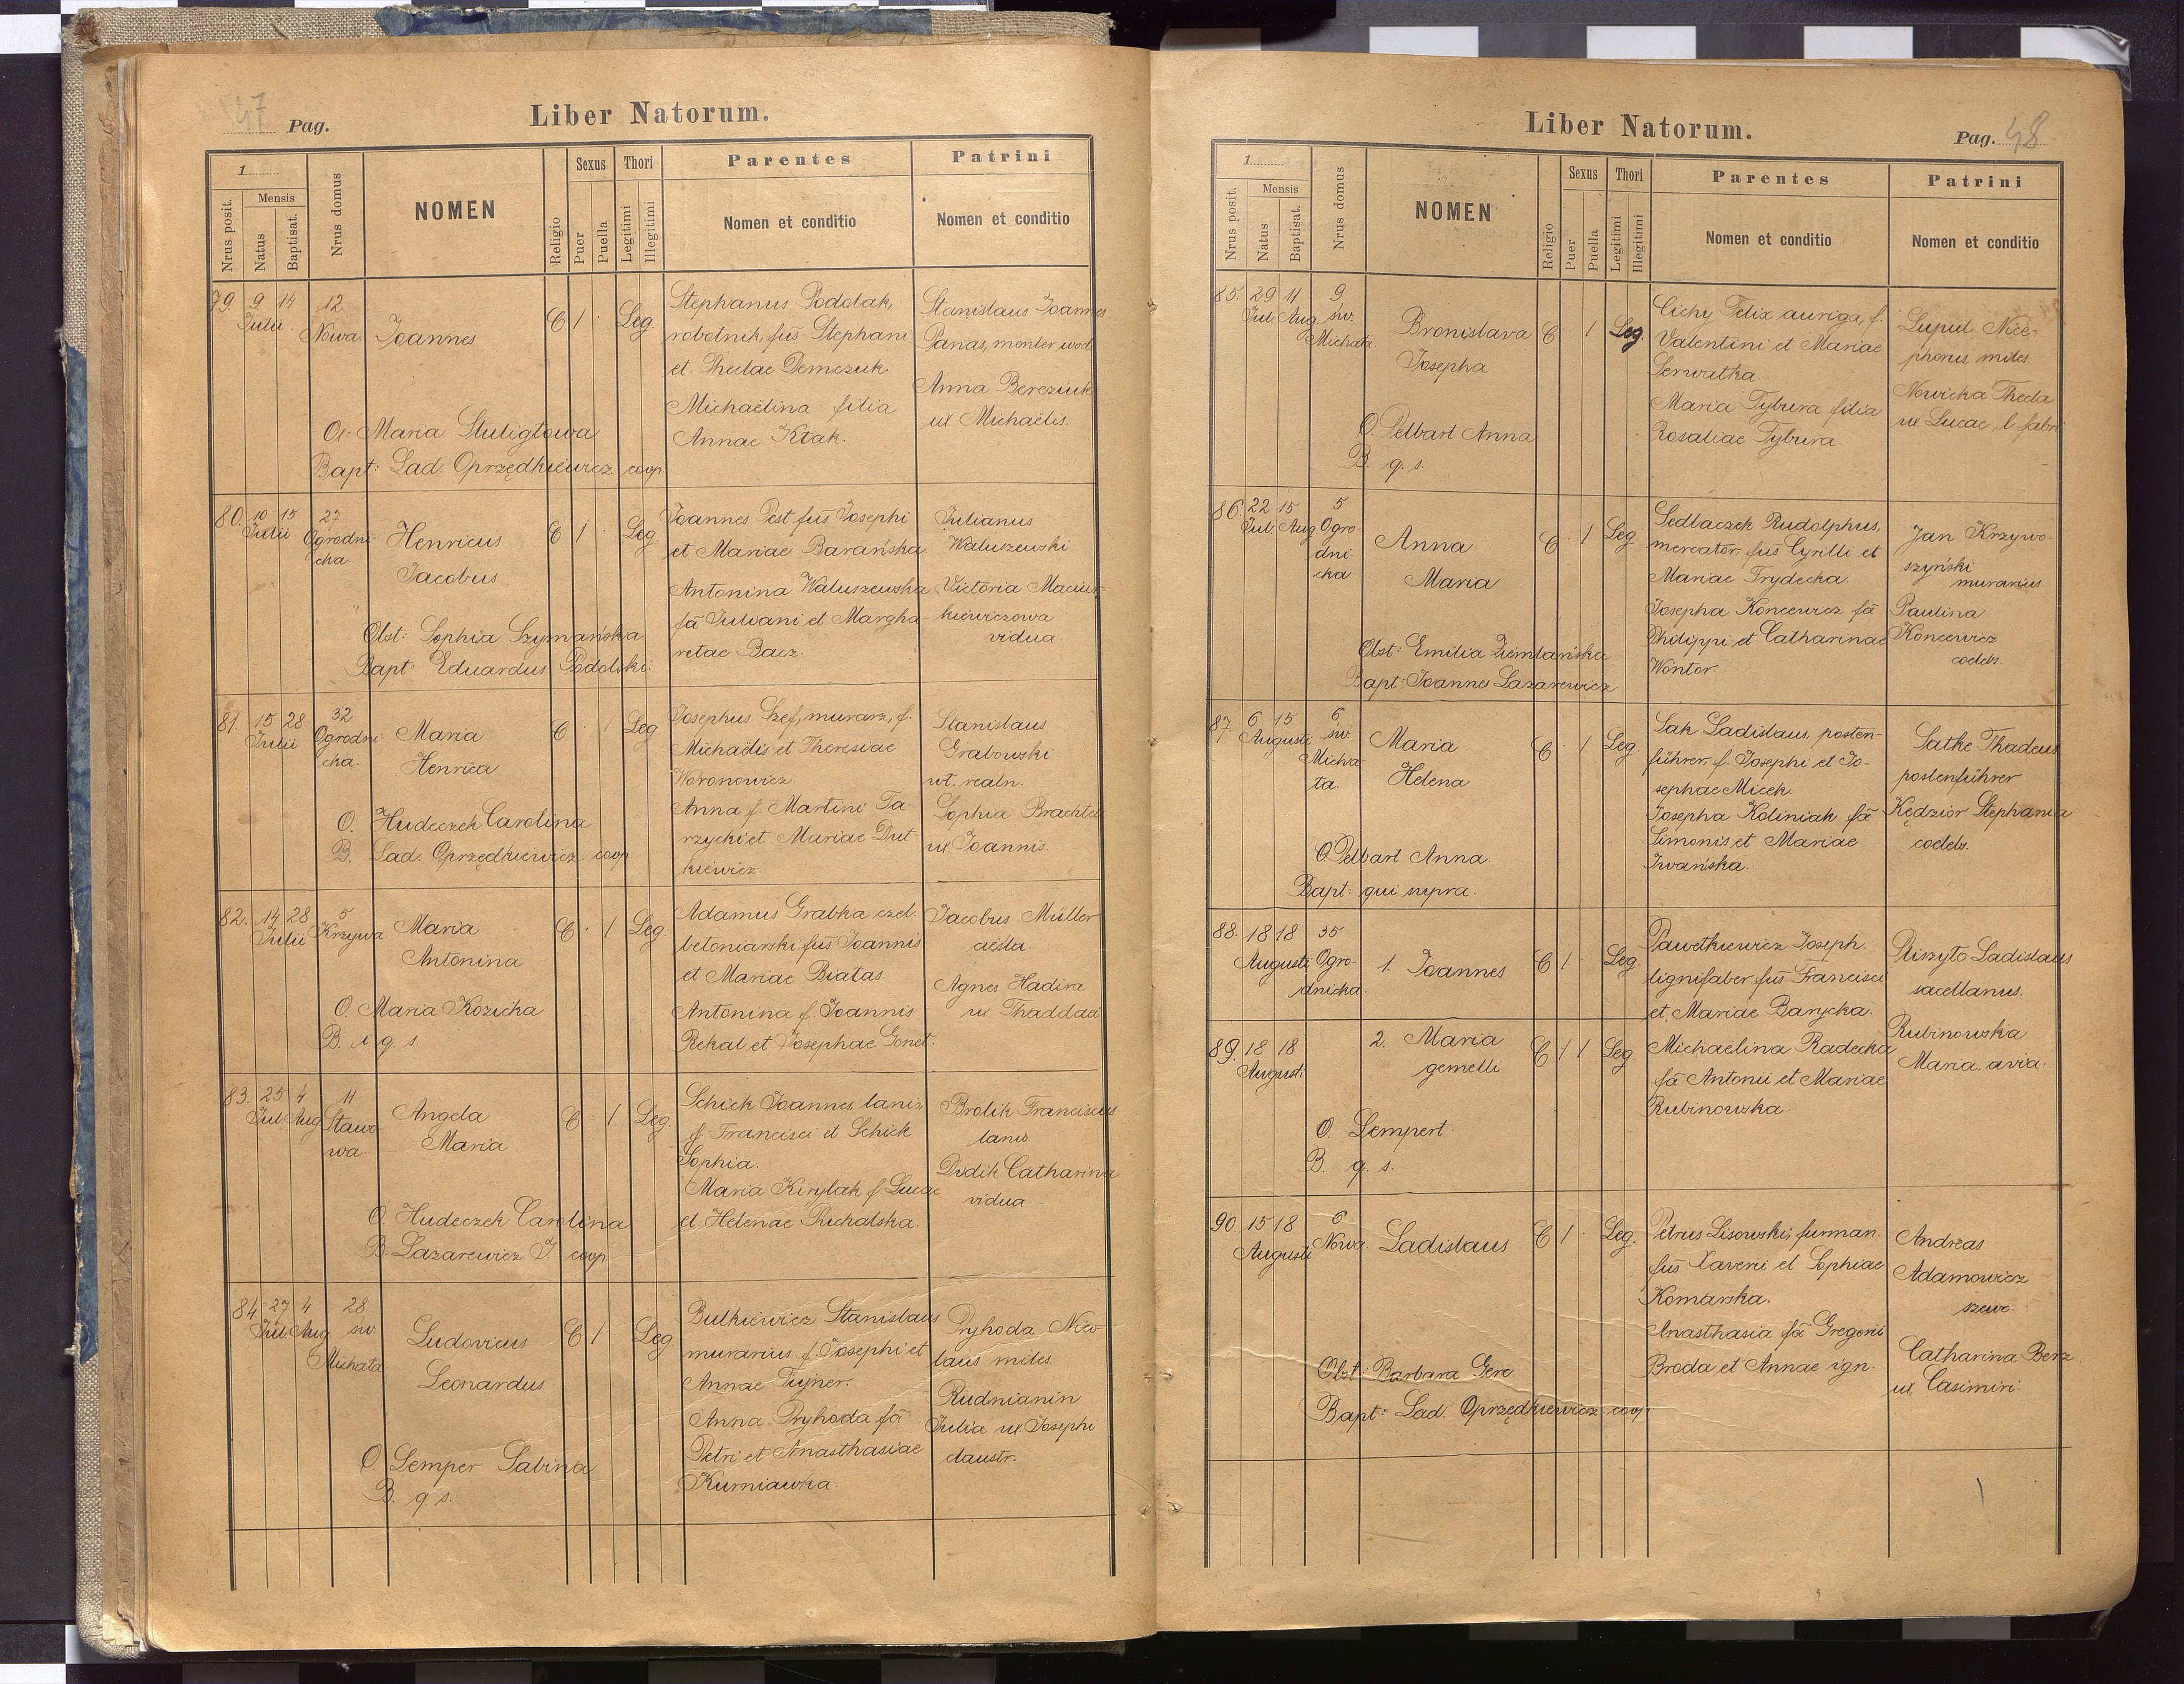 47 Pag.
Liber Natorum.
1
Nrus posit.
Mensis
Natus
Baptisat.
Nrus domus
NOMEN
Religio
Sexus
Puer
Puella
Thori
Legitimi
Illegitimi
Parentes
Nomen et conditio
Patrini
Nomen et conditio
79. 9 14 12
Julii Nowa. Joannes C 1 Leg.
Stephanus Podolak,
robotnik, fus Stephani
et Theclae Demczuk.
Michaëlina filia
Annae Kłak.
Stanislaus Joannes
Panas, monter wod.
Anna Bereziuk
ux Michaëlis.
O: Maria Stuligłowa
Bapt: Lad. Oprzędkiewicz coop.
80. 10 15 27
Julii Ogrodni
cka
Henricus C 1 Leg
Jacobus
Joannes Pest fus Josephi
et Mariae Barańska.
Antonina Waluszewska
fa Juliani et Margha-
retae Bacz.
Julianus
Waluszewski
Victoria Maciut-
kiewiczowa
vidua.
Obst: Sophia Szymańska
Bapt: Eduardus Podolski.
81. 15 28 32
Julii Ogrodni
cka.
Maria C 1 Leg
Henrica
Josephus Szef, murarz, f.
Michaëlis et Theresiae
Woronowicz.
Anna f. Martini Ta-
rzycki et Mariae Dut
kiewicz
Stanislaus
Grabowski
wł. realn.
Sophia Brachtel
ux Joannis.
O. Hudeczek Carolina
B. Lad. Oprzędkiewicz coop.
82. 14 28 5
Julii Krzywa
Maria C 1 Leg.
Antonina
Adamus Grabka czel.
betoniarski fus Joannis
et Mariae Białas
Antonina f. Joannis
Rekal et Josephae Gonet.
Jacobus Müller
Agnes Hadira
ux Thaddaei
O. Maria Kozicka
B. q. s.
83. 25 4 11
Jul. Aug. Stawo
wa
Angela C 1 Leg.
Maria
Schick Joannes lanio,
f. Francisci et Schick
Sophia.
Maria Kirylak f. Lucae
et Helenae Puchalska.
Brolik Franciscus
lanio
Didik Catharina
vidua.-
O. Hudeczek Carolina
B. Lazarewicz J. coop
84. 27 4 28
Jul. Aug. św.
Michała
Ludovicus C 1 Leg
Leonardus
Bulkiewicz Stanislaus
murarius f. Josephi et
Annae Fujner.
Anna Pryhoda fa
Petri et Anasthasiae
Kurniawka.
Pryhoda Nico
laus miles.
Rudnianin
Julia ux Josephi
claustr.
O. Semper Sabina
B. q s.
Liber Natorum.
Pag. 48
1
Nrus posit.
Mensis
Natus
Baptisat.
Nrus domus
NOMEN
Religio
Sexus
Puer
Puella
Thori
Legitimi
Illegitimi
Parentes
Nomen et conditio
Patrini
Nomen et conditio
85. 29 11 9
Jul. Aug. św.
Michała
Bronislava C 1 Leg.
Josepha
Cichy Felix auriga, f.
Valentini et Mariae
Serwatka
Maria Tybura filia
Rosaliae Tybura.
Lupul Nice-
phorus, miles.
Nowicka Thecla
ux Lucae, l. fabri
O. Pelbart Anna
B. q. s.
86. 22 15 5
Jul. Aug. Ogro-
dni-
cka
Anna C 1 Leg.
Maria
Sedlaczek Rudolphus,
mercator, fus Cyrilli et
Mariae Frydecka.
Josepha Koncewicz fa
Philippi et Catharinae
Wontor.
Jan Krzywo-
szyński
murarius.
Paulina
Koncewicz
coelebs.
Obst: Emilia Ziemlańska
Bapt: Joannes Lazarewicz
87. 6 15 6
Augusti św.
Micha
ła.
Maria C 1 Leg
Helena
Sak Ladislaus, posten-
führer f. Josephi et Jo-
sephae Micek.
Josepha Koliniak fa
Simonis et Mariae
Iwańska.
Satke Thadeus
postenführer
Kędzior Stephania
coelebs.
O. Pelbart Anna.
Bapt: qui supra.
88. 18 18 35
Augusti Ogro-
dnicka
1. Joannes C 1 Leg.
Pawełkiewicz Joseph.
lignifaber fus Francisci
et Mariae Barycka.
Piszyło Ladislaus
sacellanus.
89. 18 18
Augusti
2. Maria C 1 1 Leg
gemelli
Michaelina Radecka
fa Antonii et Mariae
Rubinowska.
Rubinowska
Maria, avia.
O. Lempert.
B. q. s.
90. 15 18 6
Augusti Nowa
Ladislaus C 1 Leg.
Petrus Lisowski, furman
fus Xaverii et Sophiae
Komarska.
Anasthasia fa Gregorii
Broda et Annae ign.
Andreas
Adamowicz
szewc.
Catharina Berz
ux Casimiri.
Obst: Barbara Gerc
Bapt: Lad. Oprzędkiewicz coop.